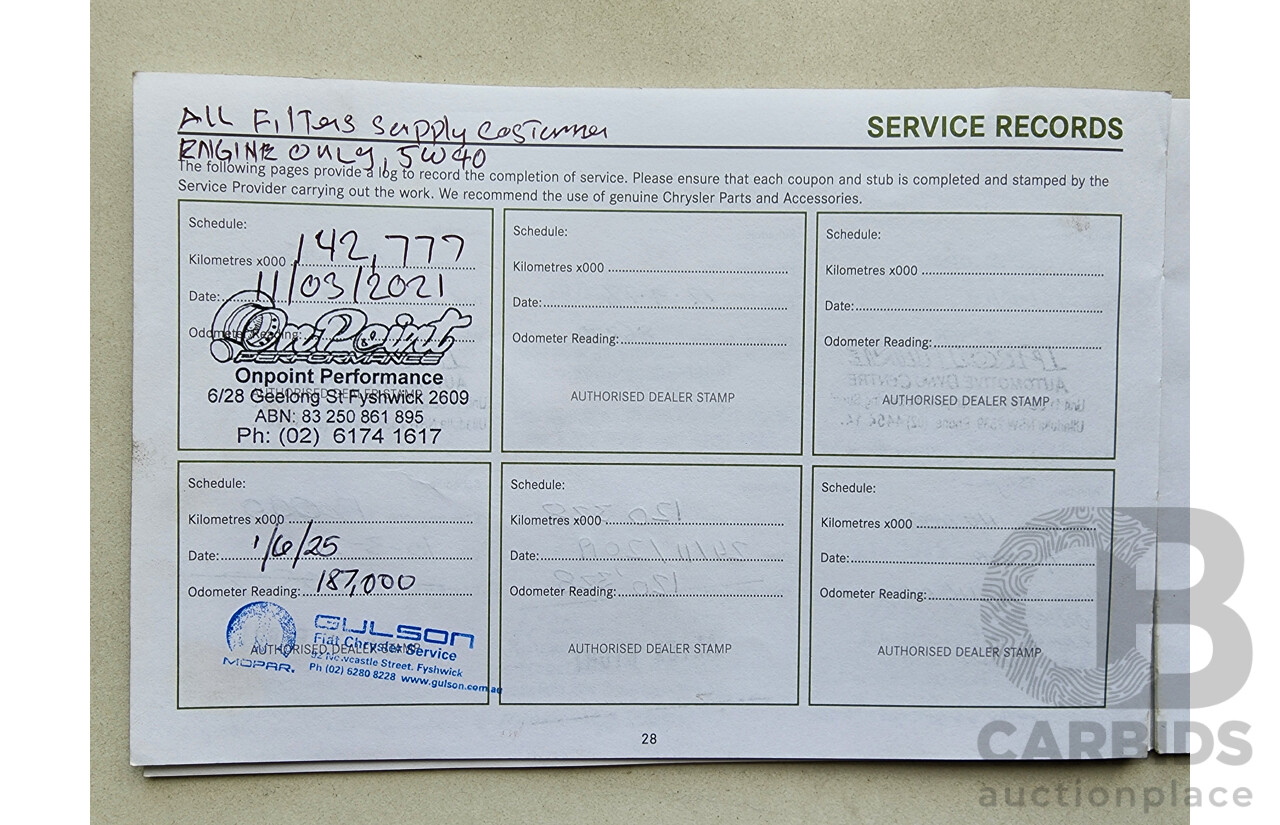 ALL FilTers supply costumer
SERVICE RECORDS
ENGINE ONLY, 5W40
The following pages provide a log to record the completion of service. Please ensure that each coupon and stub is completed and stamped by the
Service Provider carrying out the work. We recommend the use of genuine Chrysler Parts and Accessories.
Schedule:
Kilometres x000 142,777
Date: 11/03/2021
Odometer Reading:
OnPoint
PERFORMANCE
Onpoint Performance
AUTHORISED DEALER STAMP
6/28 Geelong St Fyshwick 2609
ABN: 83 250 861 895
Ph: (02) 6174 1617
Schedule:
Kilometres x000
Date:
Odometer Reading:
AUTHORISED DEALER STAMP
Schedule:
Kilometres x000
Date:
Odometer Reading:
AUTHORISED DEALER STAMP
Schedule:
Kilometres x000
Date: 1/6/25
Odometer Reading: 187,000
GULSON
Fiat Chrysler Service
AUTHORISED DEALER STAMP
MOPAR.
Newcastle Street. Fyshwick
Ph (02) 6280 8228 www.gulson.com.au
Schedule:
Kilometres x000
Date:
Odometer Reading:
AUTHORISED DEALER STAMP
Schedule:
Kilometres x000
Date:
Odometer Reading:
AUTHORISED DEALER STAMP
28
CB
CARBIDS
auctionplace